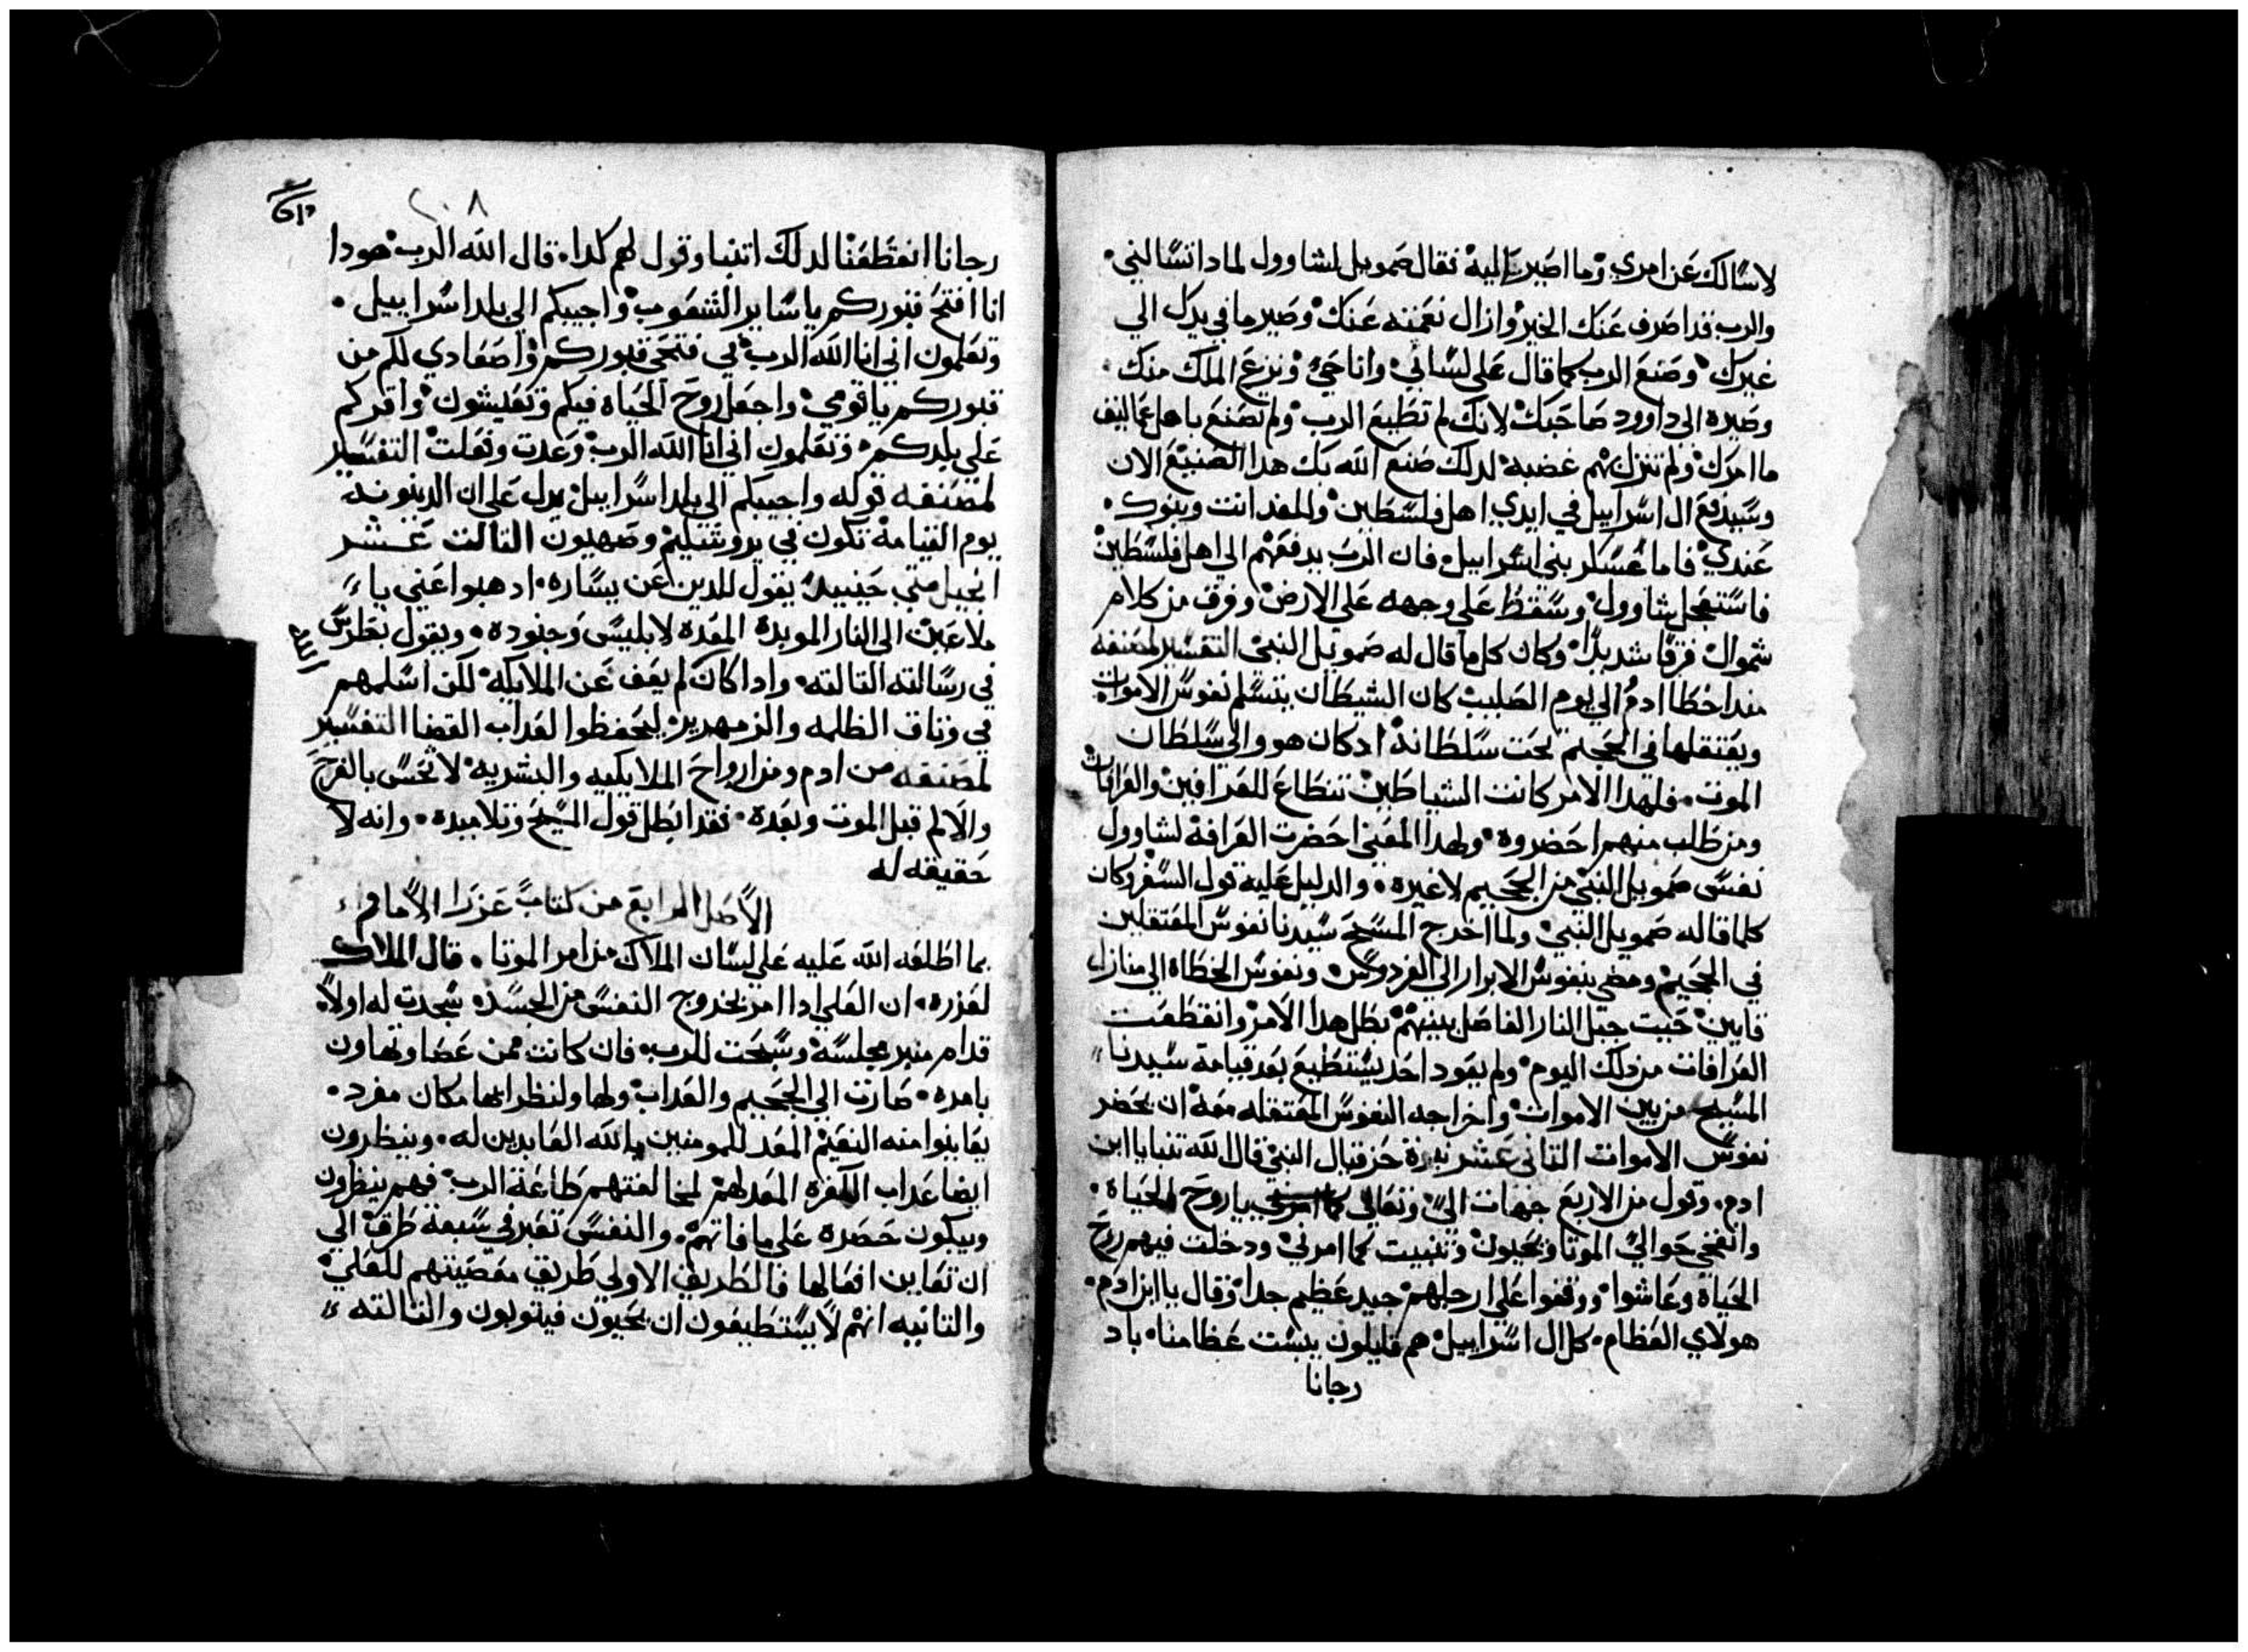 لاسالك عن امري وما اصير اليه فقال صمويل لشاوول لمادا تسالني
والرب قد اصرف عنك الخير وازال نعمته عنك وصير ما في يدك الي
غيرك وصنع الرب كما قال علي لساني وانا حي ونزع الملك منك
وصيره الي داوود صاحبك لانك لم تطيع الرب ولم تصنع باهل عماليق
ما امرك ولم تنزل بهم غضبه لدلك صنع الله بك هدا الصنيع الان
وسيدفع ال اسراييل في ايدي اهل فلسطين والمغد انت وبنوك
عندي فاما عسكر بني اسراييل فان الرب يدفعهم الي اهل فلسطين
فاستعجل شاوول وسقط علي وجهه علي الارض وفرق من كلام
شموال فزقا شديدا وكان كلما قال له صمويل النبي التفسير لمصنفه
مند اخطا ادم الي يوم الصليب كان الشيطان يتسلم نفوس الاموات
ويعتقلها في الجحيم تحت سلطانه ادكان هو والي سلطان
الموت فلهدا الامر كانت الشياطين تنطاع للعرافين والعرافات
ومن طلب منهم احضروه ولهدا المعني احضرت العرافة لشاوول
نفس صمويل النبي من الجحيم لا غيره والدليل عليه قول السفر وكان
كلما قاله صمويل النبي ولما اخرج المسيح سيدنا نفوس المعتقلين
في الجحيم ومضي بنفوس الابرار الي الفردوس ونفوس الخطاة الي منازل
قايين حيت جبل النار الفاصل بينهم بطل هدا الامر وانقطعت
العرافات من دلك اليوم ولم يعود احد يستطيع بعد قيامة سيدنا
المسيح من بين الاموات واخراجه النفوس المعتقله معه ان يحضر
نفوس الاموات التاني عشر نبوة حزقيال النبي قال الله تنبا يا ابن
ادم وقول من الاربع جهات الي وتعالي يا روح الحياه
وانفخي حوالي الموتا ويحيون وتنبيت كما امرني ودخلت فيهم روح
الحياة وعاشوا ووقفوا علي ارجلهم جيد عظيم جدا وقال يا ابن ادم
هولاي العظام كل ال اسراييل هم قايلون يبست عظامنا باد
رجانا
٢٠٨
رجانا انقطعنا لدلك اتنبا وقول لهم كدا قال الله الرب هودا
انا افتح قبوركم يا ساير الشعوب واجيبكم الي بلد اسراييل
وتعلمون اني انا الله الرب في فتحي قبوركم واصعادي لكم من
قبوركم يا قومي واجعل روح الحياه فيكم وتعيشون واقركم
علي بلدكم وتعلمون اني انا الله الرب وعدت وفعلت التفسير
لمصنفه قوله واجيبكم الي بلد اسراييل يدل علي ان الدينونه
يوم القيامة تكون في يروشليم وصهيون التالت عشر
انجيل متي حينيد يقول للدين عن يساره ادهبوا عني يا
ملاعين الي النار الموبدة المعده لابليس وجنوده ويقول بطرس
في رسالته التالته وادا كان لم يعف عن الملايكه لكن اسلمهم
في وتاق الظلمه والزمهرير ليحفظوا لعداب القضا التفسير
لمصنفه من ادم ومن ارواح الملايكيه والبشريه لا تحس بالفرح
والالم قبل الموت وبعده فقد ابطل قول المسيح وتلاميده وانه لا
حقيقه له
الاصل الرابع من كتاب عزرا الامام
بما اطلعه الله عليه علي لسان الملاك من امر الموتا قال الملاك
لعزره ان العلي ادا امر بخروج النفس من الجسد سجدت له اولا
قدام منبر مجلسه وسبحت للرب فان كانت ممن عصا وتهاون
بامره صارت الي الجحيم والعداب ولها ولنظرايها مكان مفرد
يعاينوا منه النعيم المعد للمومنين بالله العابدين له وينظرون
ايضا عداب الكفره المعد لهم لمخالفتهم طاعة الرب فهم ينظرون
ويبكون حصره علي ما فاتهم والنفس تعبر في سبعة طرق الي
ان تعاين افعالها فالطريق الاولي طريق معصيتهم للعلي
والتانيه انهم لا يستطيعون ان يحيون فيتوبون والتالته